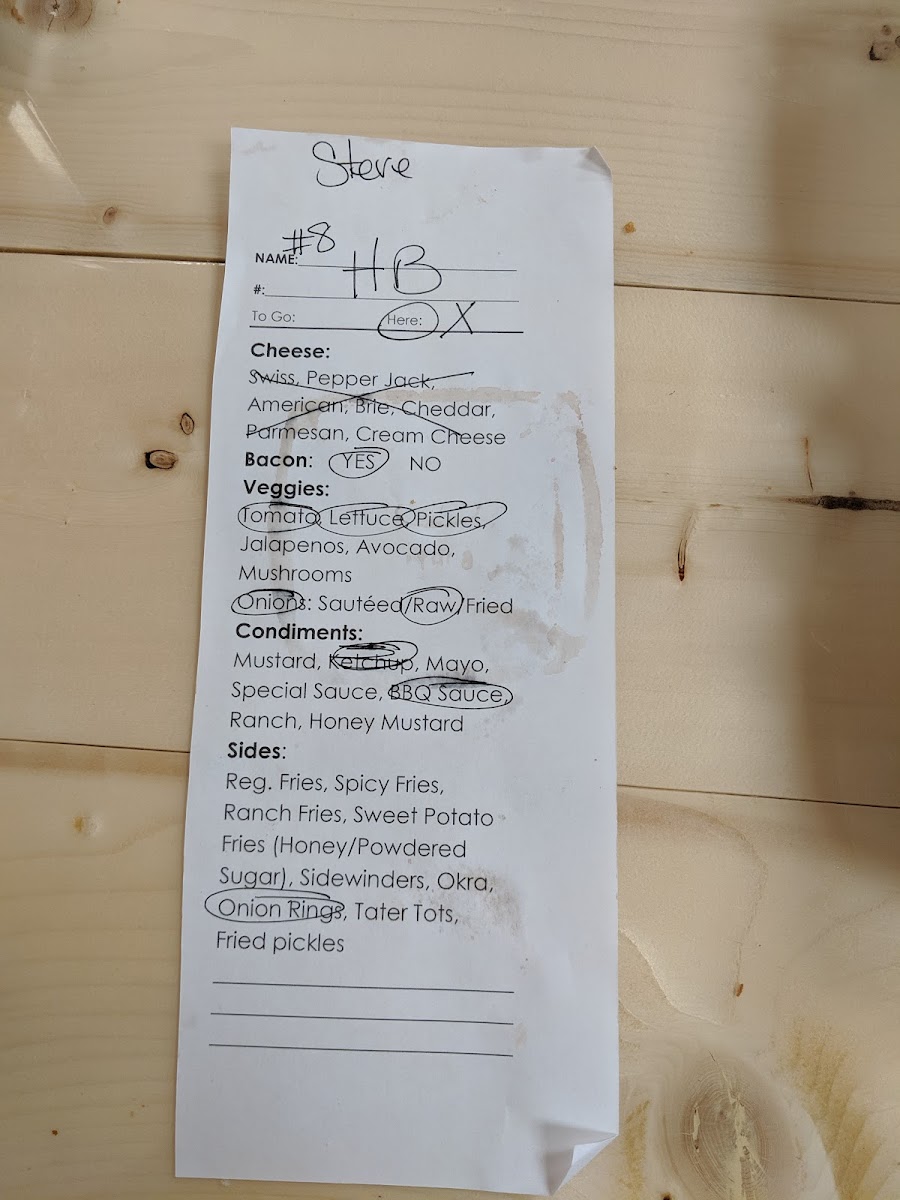 Steve
#8
NAME: HB
#:
To Go: Here: X
Cheese:
Swiss, Pepper Jack,
American, Brie, Cheddar,
Parmesan, Cream Cheese
Bacon: YES NO
Veggies:
Tomato, Lettuce, Pickles,
Jalapenos, Avocado,
Mushrooms
Onions: Sautéed/Raw/Fried
Condiments:
Mustard, Ketchup, Mayo,
Special Sauce, BBQ Sauce,
Ranch, Honey Mustard
Sides:
Reg. Fries, Spicy Fries,
Ranch Fries, Sweet Potato
Fries (Honey/Powdered
Sugar), Sidewinders, Okra,
Onion Rings, Tater Tots,
Fried pickles